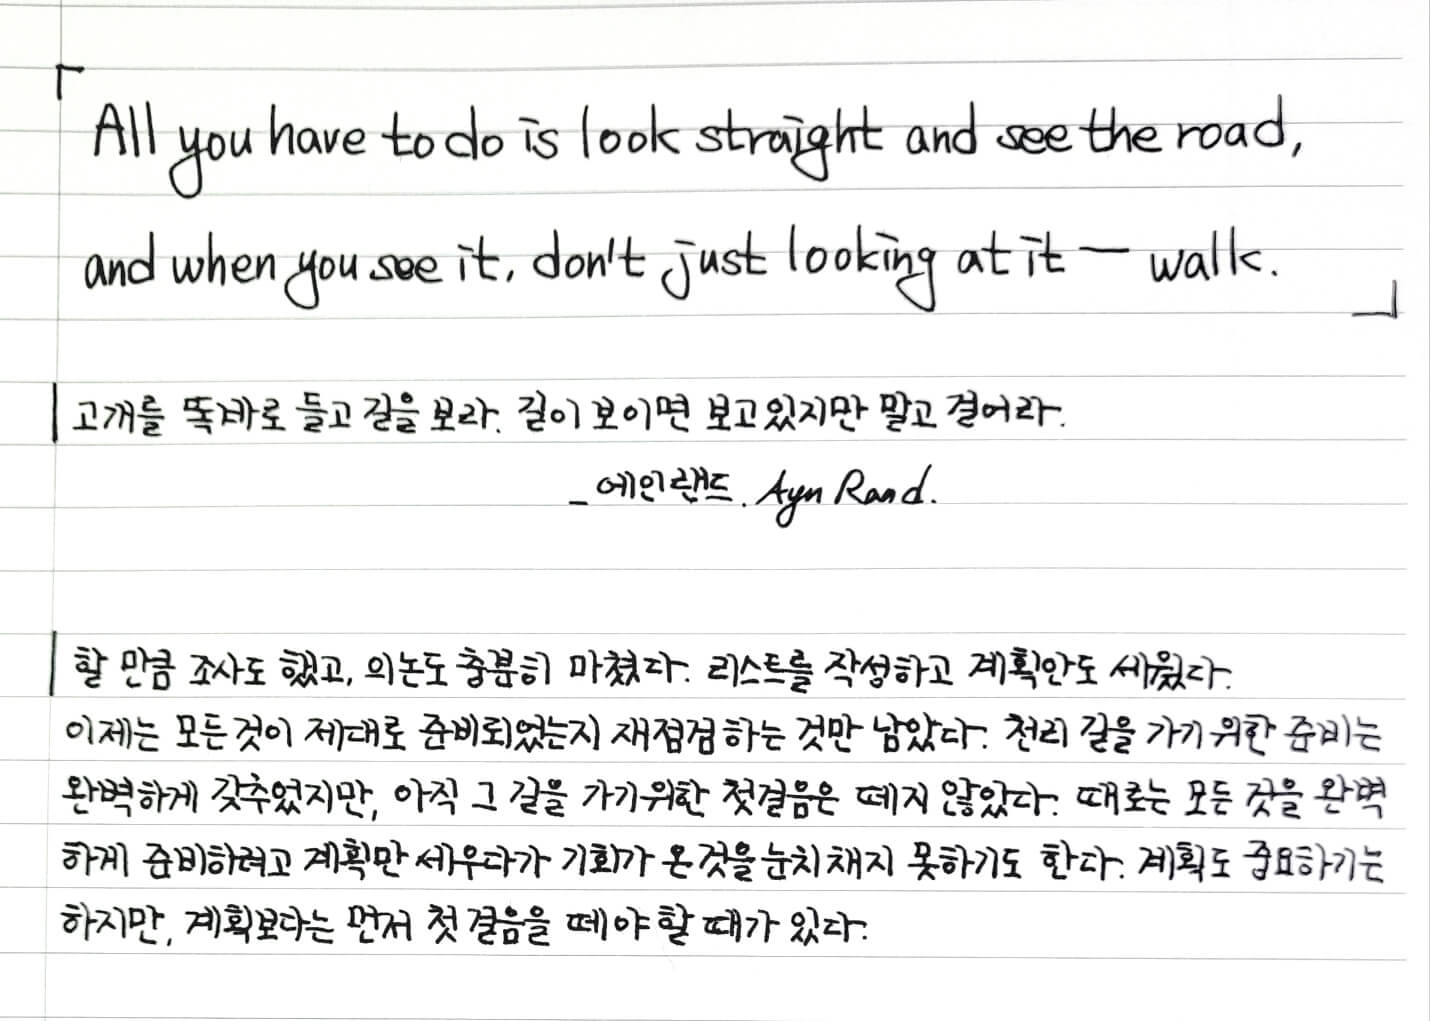 「All you have to do is look straight and see the road,
and when you see it, don't just looking at it — walk.」
고개를 똑바로 들고 길을 보라. 길이 보이면 보고있지만 말고 걸어라.
_에인랜드. Ayn Rand.
할 만큼 조사도 했고, 의논도 충분히 마쳤다. 리스트를 작성하고 계획안도 세웠다.
이제는 모든것이 제대로 준비되었는지 재점검하는 것만 남았다. 천리 길을 가기 위한 준비는
완벽하게 갖추었지만, 아직 그 길을 가기위한 첫걸음은 떼지 않았다. 때로는 모든 것을 완벽
하게 준비하려고 계획만 세우다가 기회가 온것을 눈치채지 못하기도 한다. 계획도 중요하기는
하지만, 계획보다는 먼저 첫 걸음을 떼야 할 때가 있다.